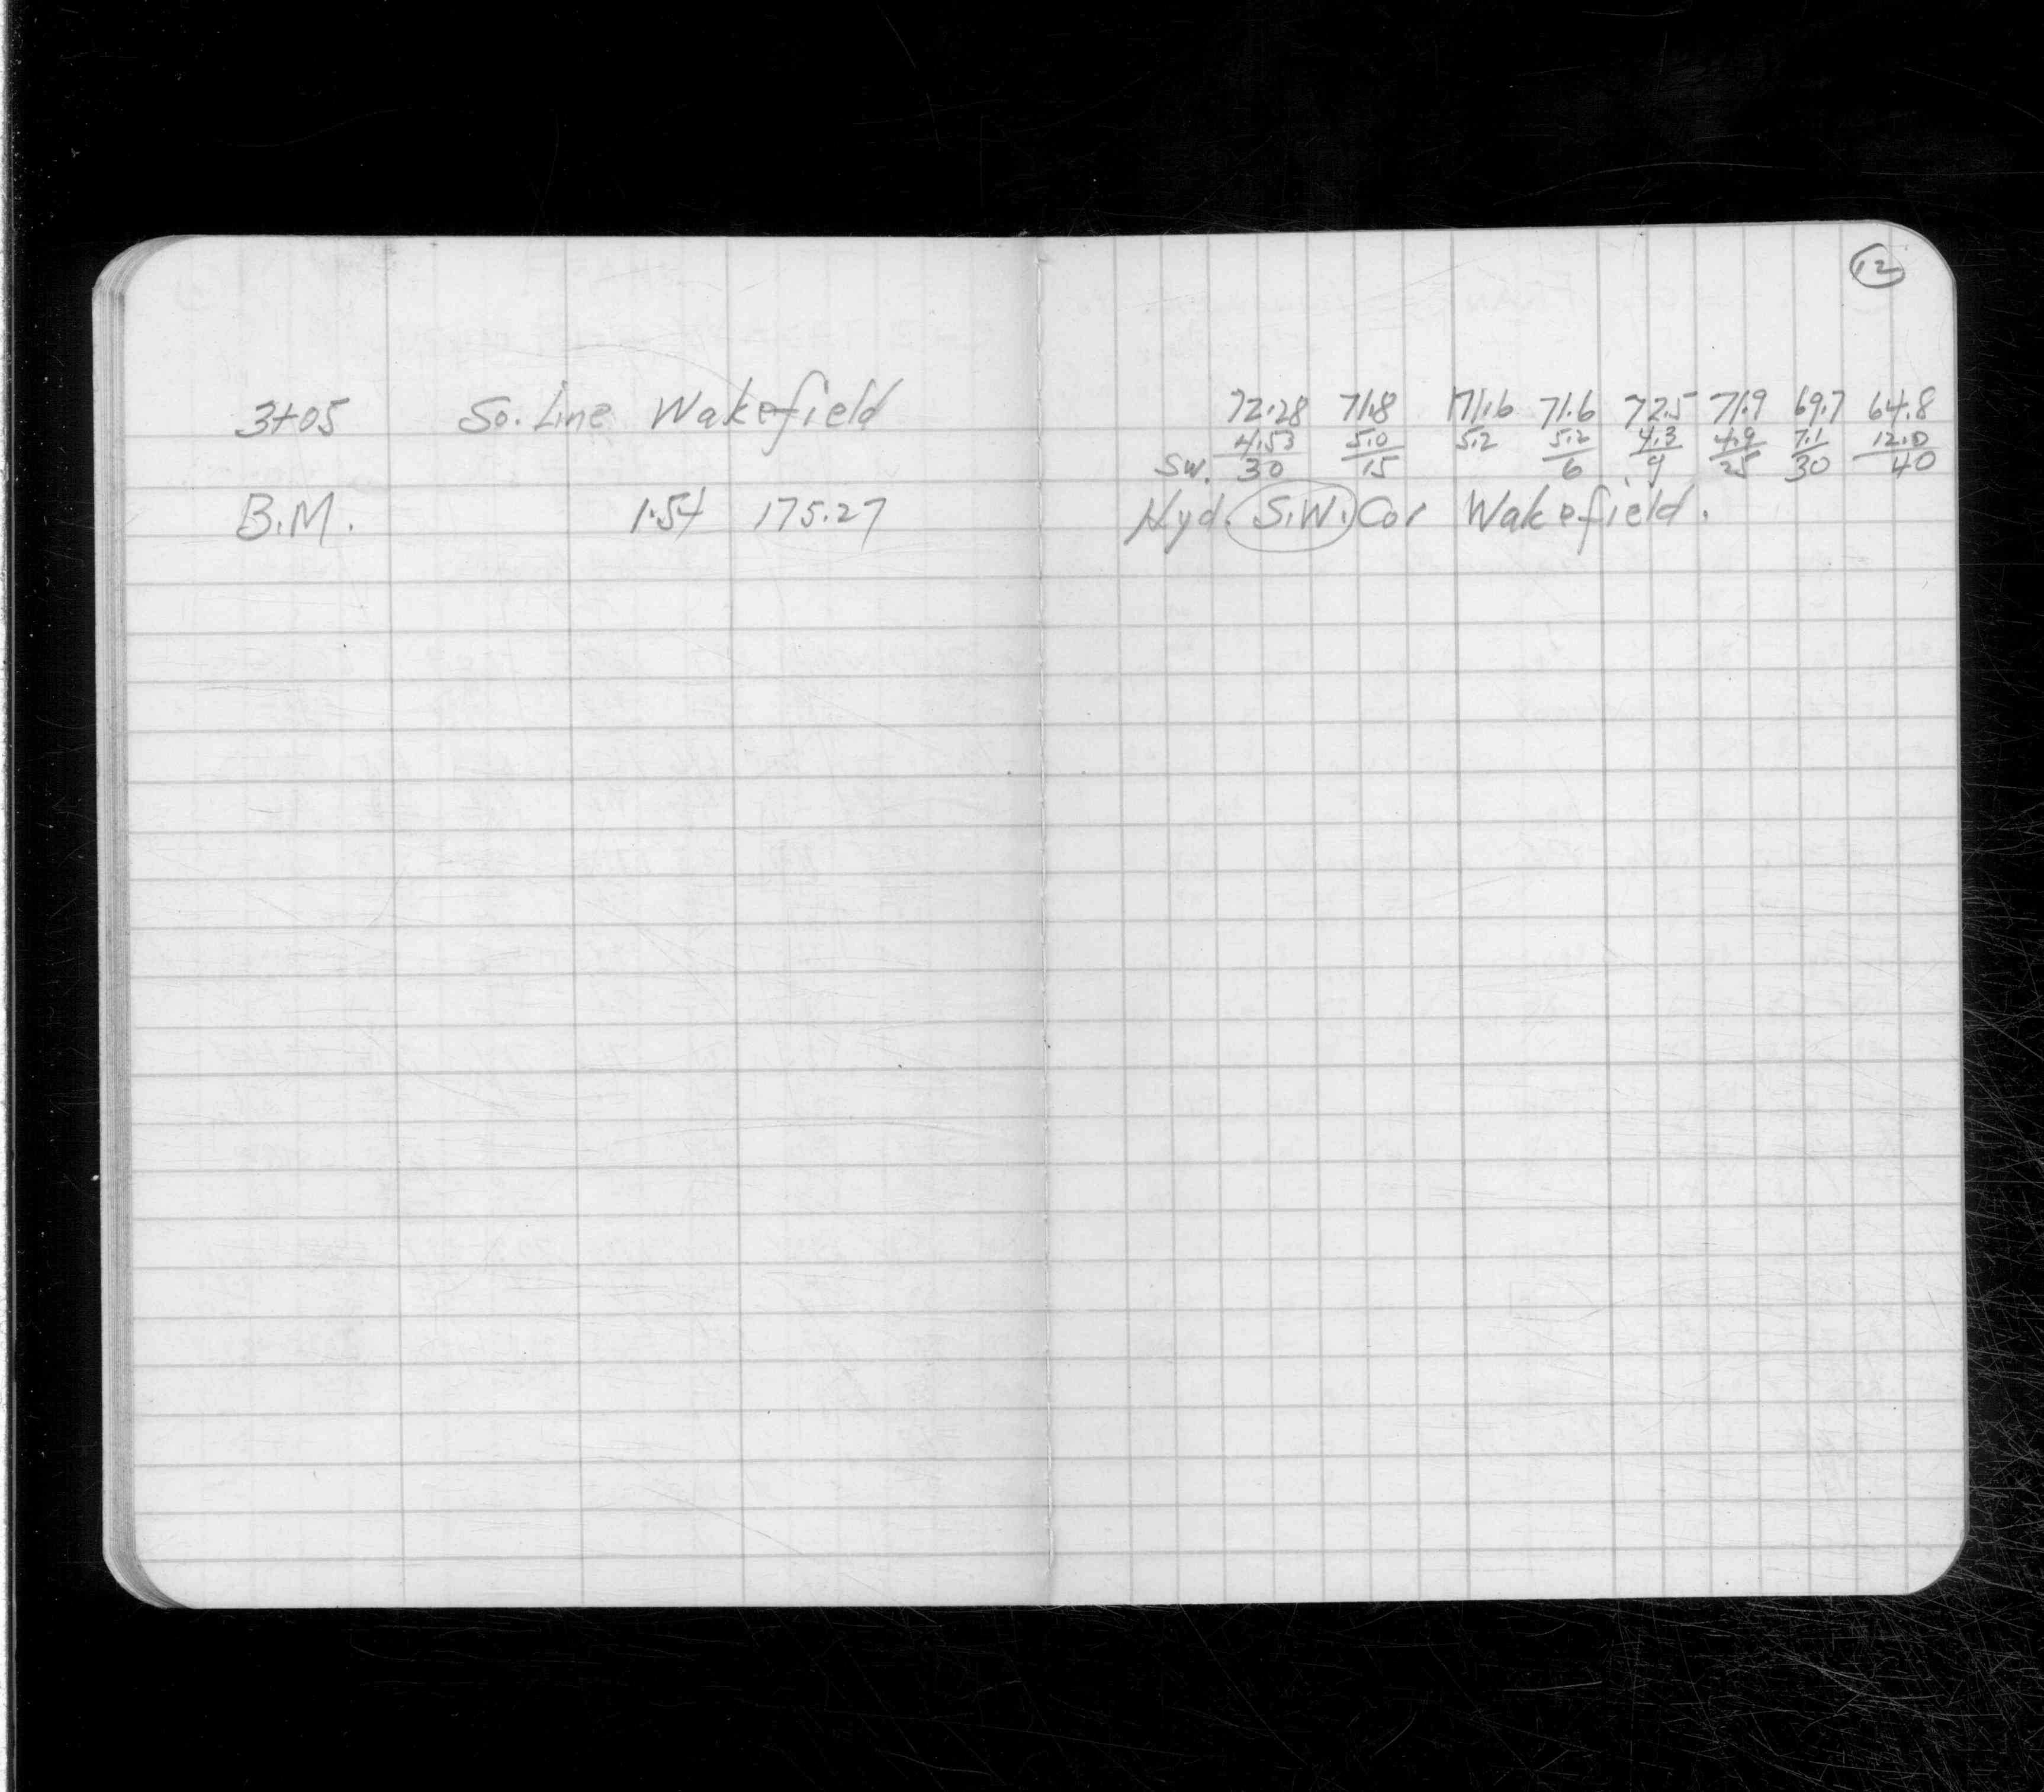 12
3+05 So. Line Wakefield
B.M. 1.54 175.27
72.28 71.8 71.6 71.6 72.5 71.9 69.7 64.8
4.53 5.0 5.2 5.2 4.3 4.9 7.1 12.0
SW. 30 15 6 9 25 30 40
Hyd. S.W. Cor Wakefield.